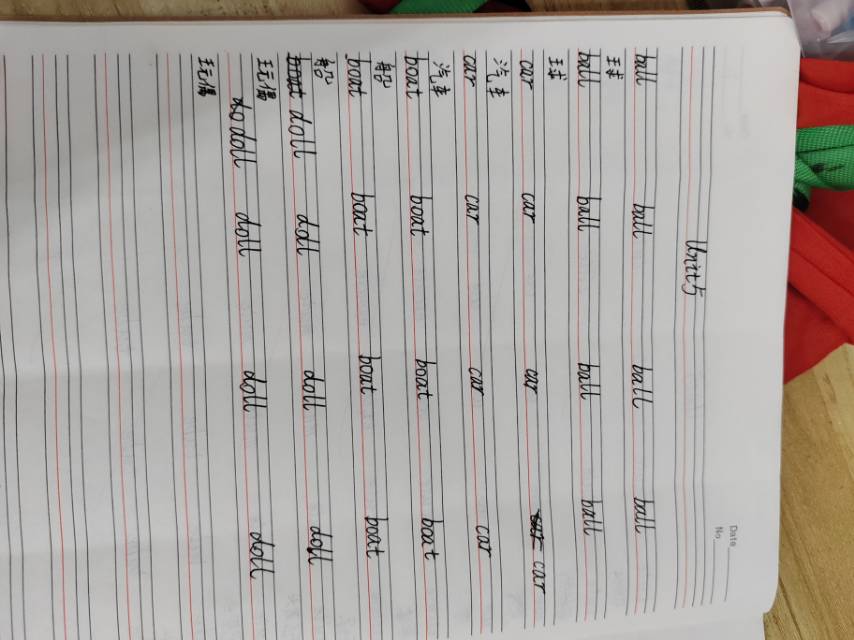 Date
No.
Unit5
ball ball ball ball
球
ball ball ball ball
球
car car car car
汽车
car car car car
汽车
boat boat boat boat
船
boat boat boat boat
船
doll doll doll doll
玩偶
do doll doll doll doll
玩偶